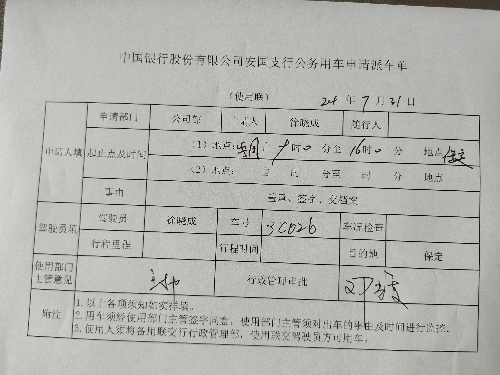 中国银行股份有限公司安国支行公务用车申请派车单
(使用联) 24 年 7 月 31 日
申请部门 公司部 申请人 徐晓成 随行人
申请人填 起止点及时间 (1) 地点: 安国 9 时 0 分至 16 时 0 分 地点 保定
(2) 地点: 日 时 分至 时 分 地点
事由 签字、交档案
驾驶员填 驾驶员 徐晓成 车号 3C026 车况检查
行程里程 行程时间 目的地 保定
使用部门主管意见 行政管理审批
附注 1.以上各项须如实祥填。
2.用车须经使用部门主管签字同意,使用部门主管须对出车的事由及时间进行监控。
3.使用人须将备用联交行政管理部,使用联交驾驶员方可用车。